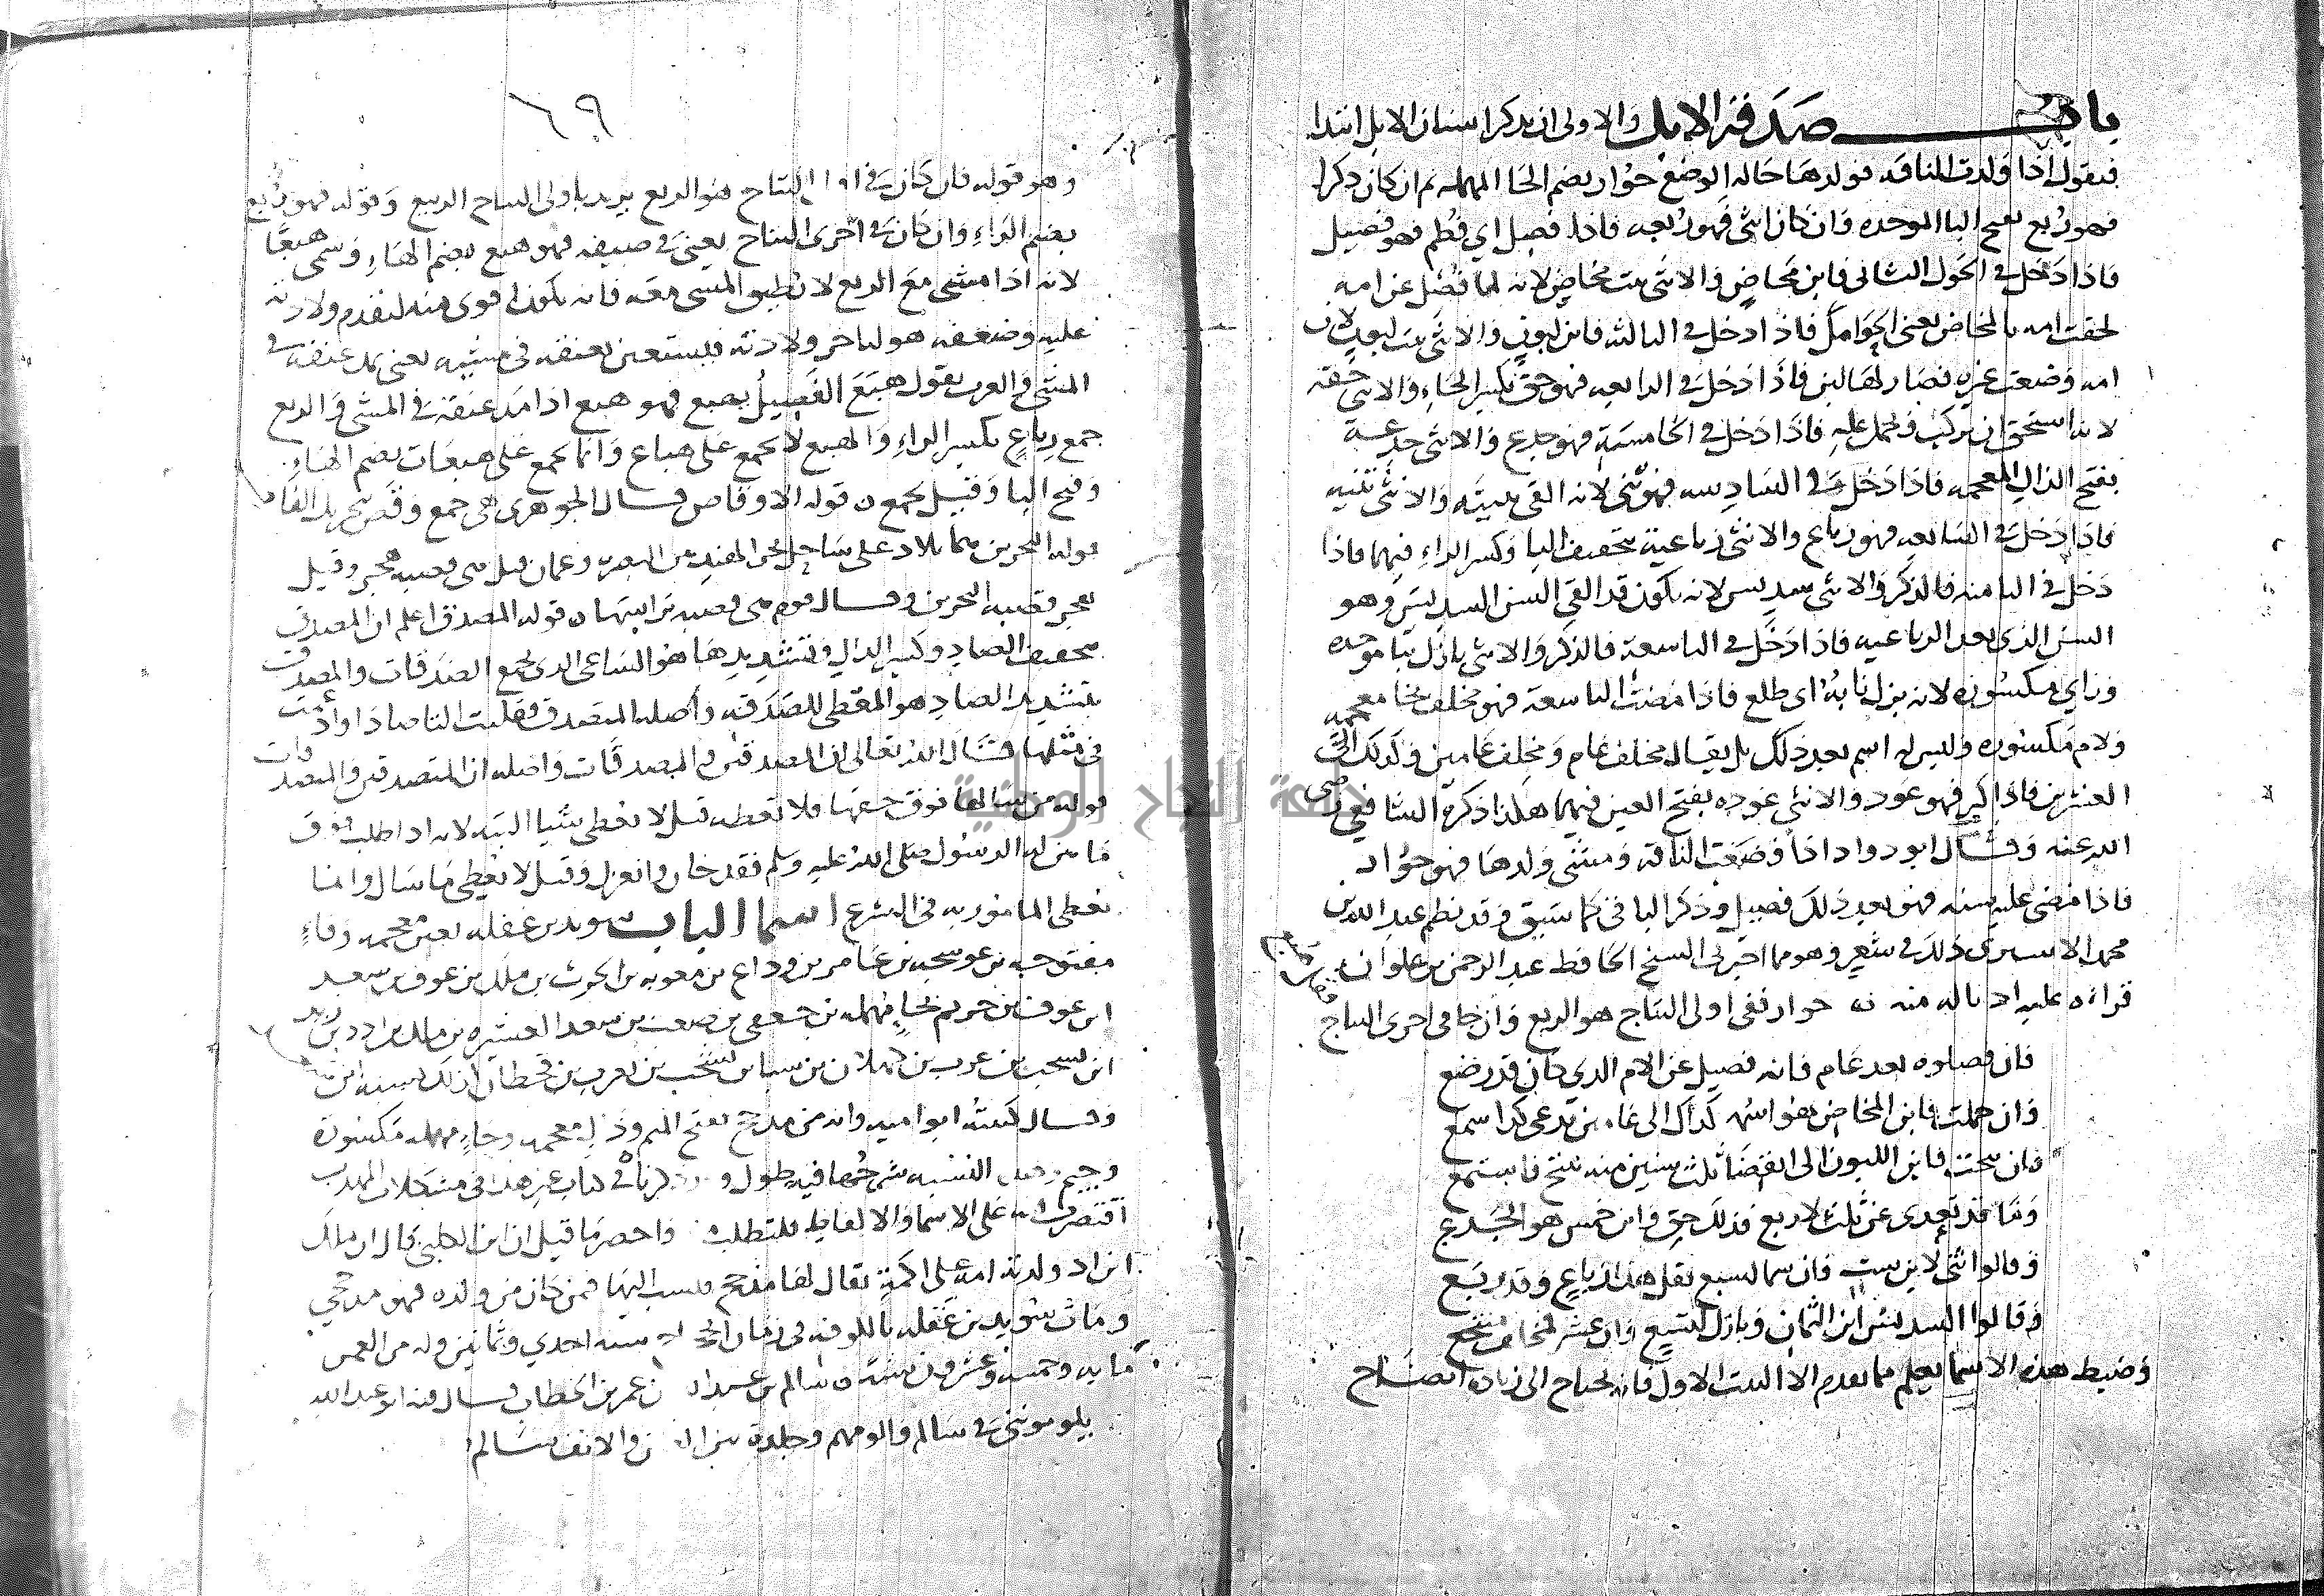 باب صدقة الابل والاولى ان يذكر اسنان الابل ابتدا
فيقول اذا ولدت الناقة فولدها حالة الوضع حوار بضم الحا المهملة ثم ان كان ذكرا
فهو رُبع بفتح البا الموحده وان كان انثى فهو رُبعه فاذا فصل اي فُطم فهو فصيل
فاذا دخل في الحول الثاني فابن مخاض والانثى بنت مخاض لانه لما فصل عن امه
لحقت امه بالمخاض يعني الحوامل فاذا دخل في الثالثه فابن لبون والانثى بنت لبون لان
امه وضعت غيره فصار لها لبن فاذا دخل في الرابعه فهو حق بكسر الحاء والانثى حقه
لانه استحق ان يركب ويحمل عليه فاذا دخل في الخامسة فهو جذع والانثى جذعة
بفتح الذال المعجمه فاذا دخل في السادسه فهو ثني لانه القى ثنيته والانثى ثنيه
فاذا دخل في السابعه فهو رباع والانثى رباعية بتخفيف اليا وكسر الراء فيهما فاذا
دخل في الثامنه فالذكر والانثى سديس لانه يكون قد القى السن السديس وهو
السن الذي بعد الرباعيه فاذا دخل في التاسعة فالذكر والانثى بازل ببا موحده
وزاي مكسوره لانه بزل نابه اي طلع فاذا مضت التاسعة فهو مخلف بخا معجمه
ولام مكسوره وليس له اسم بعد ذلك بل يقال مخلف عام ومخلف عامين وكذلك الى
العشرين فاذا كبر فهو عود والانثى عوده بفتح العين فيهما هكذا ذكره الشافعي رضى
الله عنه وقال ابو داود اذا وضعت الناقة ومشى ولدها فهو حوار
فاذا مضى عليه سنه فهو بعد ذلك فصيل وذكر الباقي كما سبق وقد نظم عبد الله بن
محمد ذلك في شعر وهو مما اخبرني الشيخ الحافظ عبد الرحمن بن علوان
قراءة عليه حوار ففي اولى النتاج هو الربع وان جا في اخرى النتاج
فان فصلوه بعد عام فانه فصيل عن الام الذي كان قد رضع
وان حملت فابن المخاض هو اسمه كذاك الى عامين يدعى كذا سمع
فان نتجت فابن اللبون الى انقضا ثلث سنين منه تنتج فاستمع
وما قد تعدى عن ثلث لاربع فذلك حق وابن خمس هو الجذع
وقالوا ثني لابن ست فان سما لسبع فقل هذا رباع وقد ربع
وقالوا السديس ابن الثمان وبازل لتسع وان عشر
وضبط هذه الاسما يعلم مما تقدم الا البيت الاول فانه يحتاج الى زيادة ايضاح
٦٩
وهو قوله فان كان في اولى النتاج هو الربع يريد باولى النتاج الربيع وقوله فهو رُبع
بضم الراء وان كان في اخرى النتاج يعني في صيفه فهو هبع بضم الهاء وسمى هبعا
لانه اذا مشى مع الربع لا يطيق المشى معه فانه يكون اقوى منه لتقدم ولادته
عليه وضعفه هو لتاخر ولادته فيستعين بعنقه في مشيه يعني يمد عنقه في
المشى والعرب تقول هبع الفصيل يهبع فهو هبع اذا مد عنقه في المشى والربع
جمع رباع بكسر الراء والهبع لا يجمع على هباع وانما يجمع على هبعات بضم الهاء
وفتح البا وقيل يجمع قوله الاوقاص قال الجوهري هي جمع وقص بتحريك القاف
قوله البحرين هما بلاد على ساحل بحر الهند بين البصرة وعمان قيل هي قصبة هجر وقيل
هجر قصبة البحرين وقال قوم هي قصبة قوله المصدق اعلم ان المصدق
بتخفيف الصاد وكسر الدال وتشديدها هو الساعي الذي يجمع الصدقات والمصدق
بتشديد الصاد هو المعطي للصدقه واصله المتصدق فقلبت التا صادا وادغمت
في مثلها قال الله تعالى ان المصدقين والمصدقات واصله ان المتصدقين والمتصدقات
قوله من سالها فوق حقها فلا تعطه قيل لا يعطى شيا البته لانه اذا طلب فوق
ما بين له الرسول صلى الله عليه وسلم فقد خان وانعزل وقيل لا يعطى ما سال وانما
يعطى المامور به في الشرع اسما الباب سويد بن غفله بغين معجمه وفاء
مفتوحه بن عوسجه بن عامر بن وداع بن معويه بن الحرث بن ملك بن عوف بن سعد
ابن عوف بن حريم بحاء مهمله بن جعفي بن صعب بن سعد العشيره بن مالك بن ادد بن زيد
ابن يشجب بن عريب بن كهلان بن سبا بن يشجب بن يعرب بن قحطان
وقال كنيته ابو اميه وانه من مذحج بفتح الميم وذال معجمه وحاء مهمله مكسورة
وجيم وهذه النسبه شرحها فيه طول وذكرناه في كتاب غير هذا في مشكلات المهذب
اقتصرت على الاسما والالفاظ واحصر ما قيل ان ابن الكلبي قال ان ملك
ابن ادد ولدته امه على اكمة يقال لها مذحج فنسب اليها فمن كان من ولده فهو مذحجي
ومات سويد بن غفله بالكوفه في زمان سنه احدي وثمانين وله من العمر
مايه وخمسه وعشرون سنة سالم بن عبد الله بن عمر بن الخطاب قال فيه ابوه عبد الله
يلومونني في سالم والومهم وجلدة بين والانف سالم